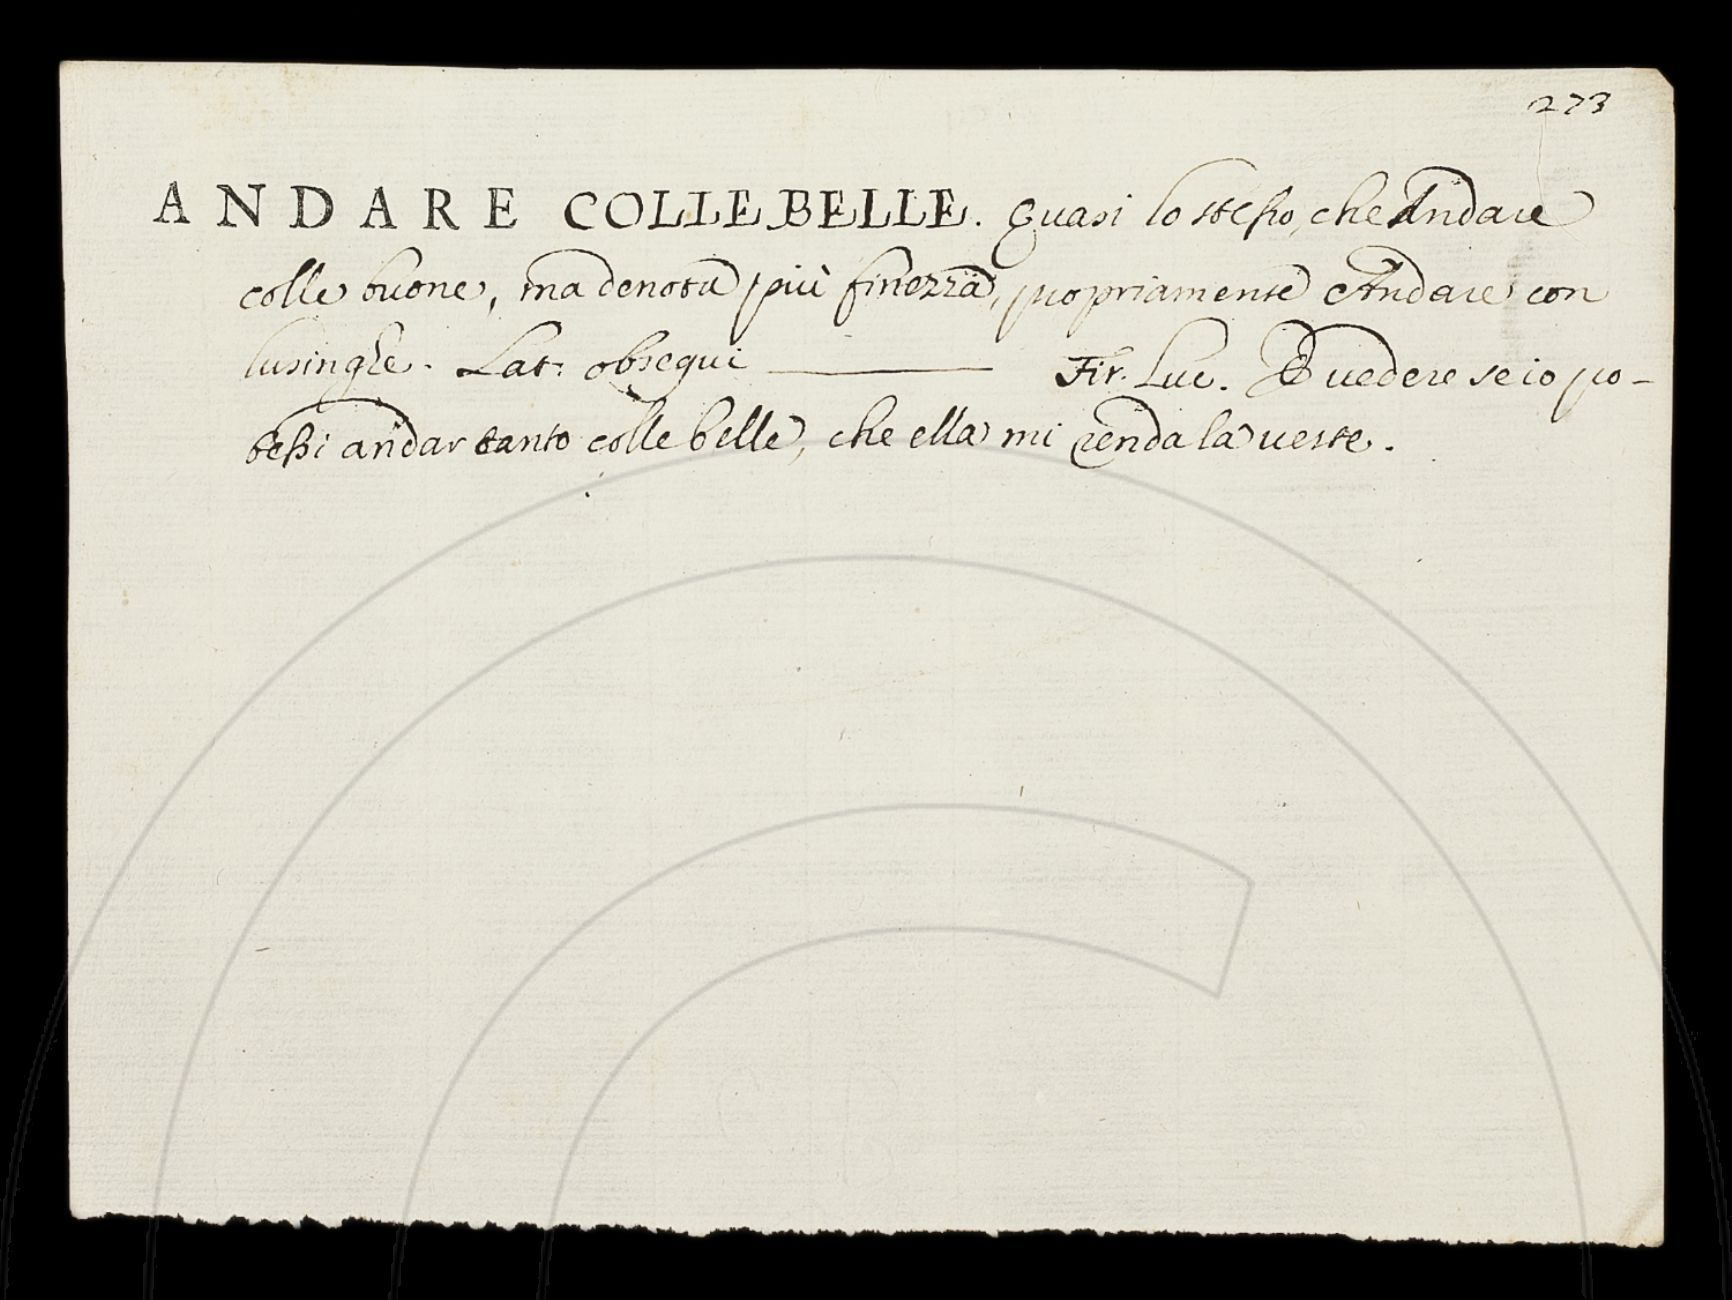 273
ANDARE COLLE BELLE. Quasi lo stesso, che Andare
colle buone, ma denota più finezza, propriamente Andare con
lusinghe. Lat: obsequi ——— Fir. Luc. E vedere se io po-
tessi andar tanto colle belle, che ella mi renda la veste.